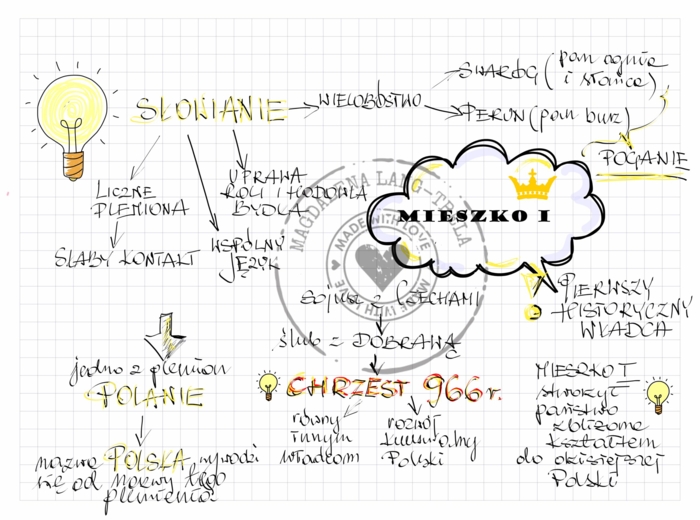 SŁOWIANIE
WIELOBÓSTWO
SWARÓG (pan ognia
i słońca)
PERUN (pan burz)
POGANIE
LICZNE
PLEMIONA
SŁABY KONTAKT
WSPÓLNY
JĘZYK
UPRAWA
ROLI I HODOWLA
BYDŁA
MIESZKO I
PIERWSZY
HISTORYCZNY
WŁADCA
SOJUSZ Z CZECHAMI
ślub z DOBRAWĄ
CHRZEST 966 r.
równy
innym
władcom
rozwój
Polski
jedno z plemion
POLANIE
nazwa POLSKA wywodzi
się od nazwy tego
plemienia
MIESZKO I
stworzył
państwo
zbliżone
kształtem
do dzisiejszej
Polski
MAGDALENA LANG-TROLA
MADE WITH LOVE
MADE WITH LOVE